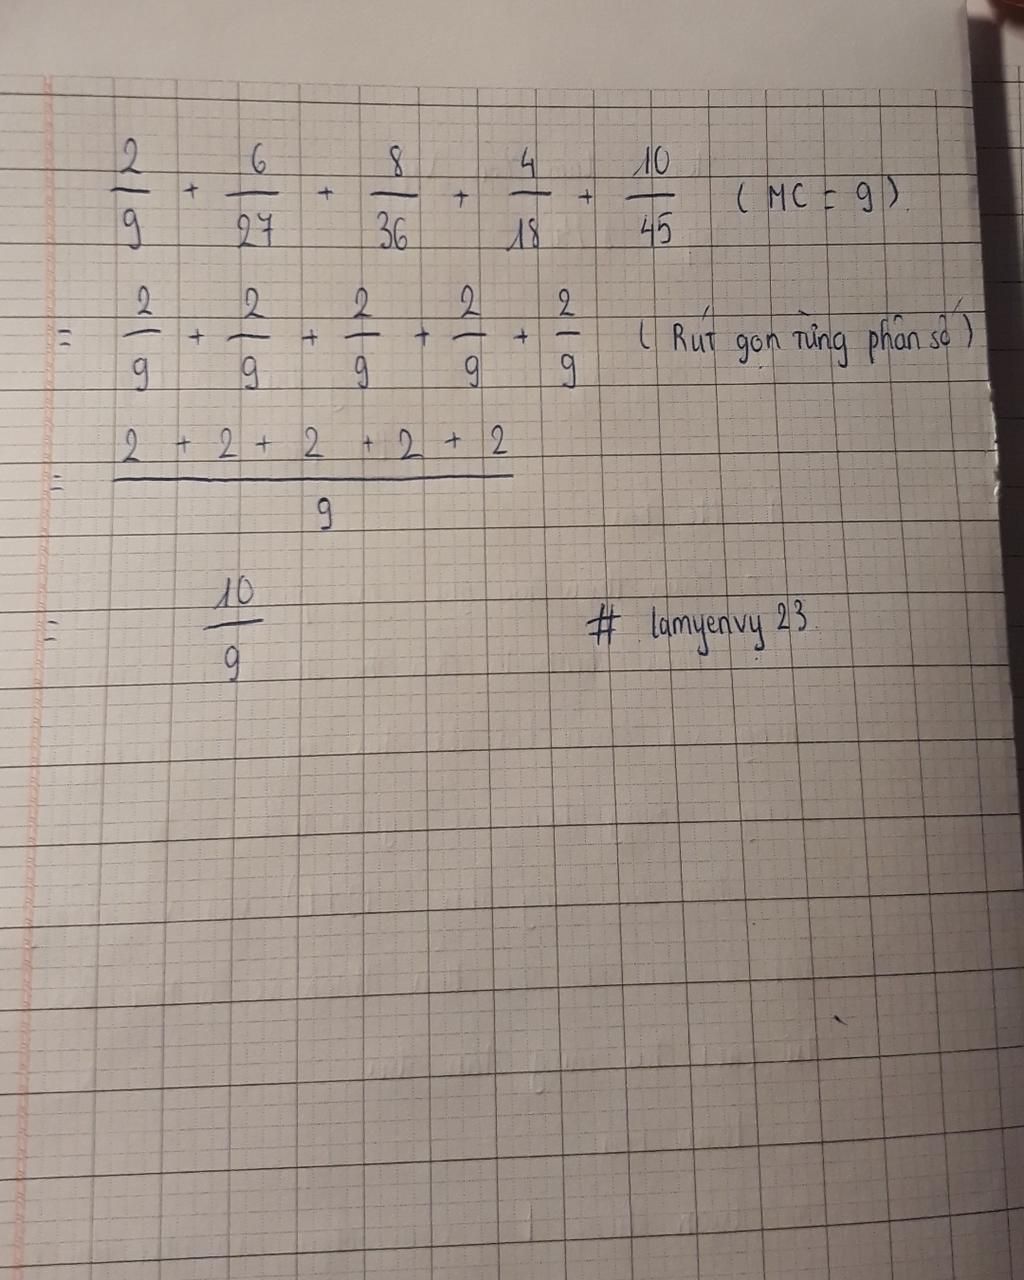 2/9 + 6/27 + 8/36 + 4/18 + 10/45 (MC = 9)
= 2/9 + 2/9 + 2/9 + 2/9 + 2/9 (Rút gọn từng phân số)
= 2 + 2 + 2 + 2 + 2 / 9
= 10/9 # lamyenvy 23